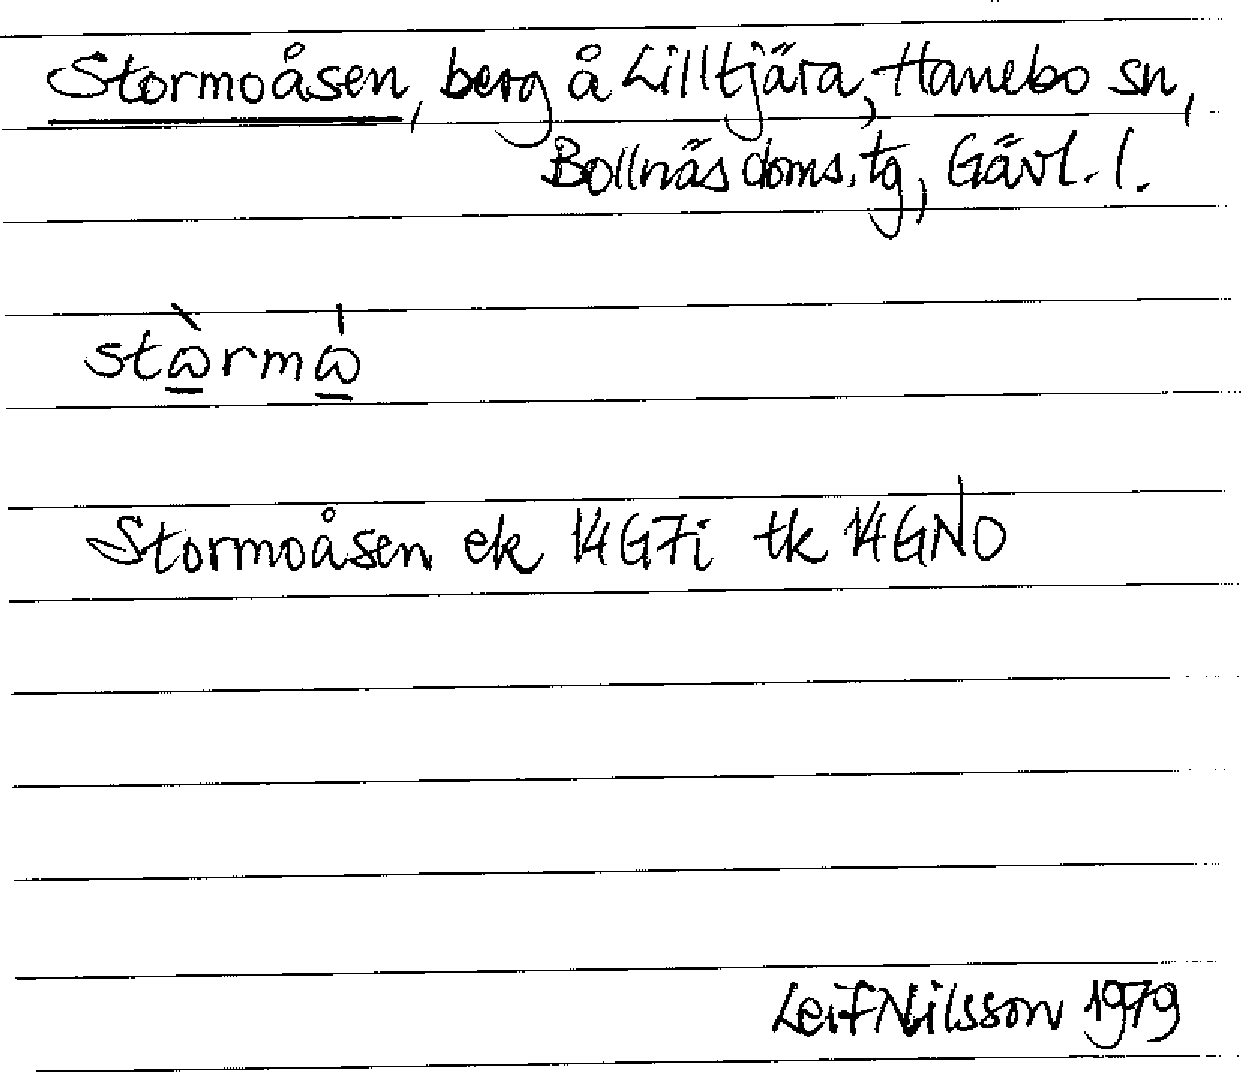 Stormoåsen, berg å Lilltjära, Hanebo sn,
Bollnäs doms.tg, Gävl. l.
stὼ̲rmώ̲
Stormoåsen ek 14G7i tk 14GNO
Leif Nilsson 1979